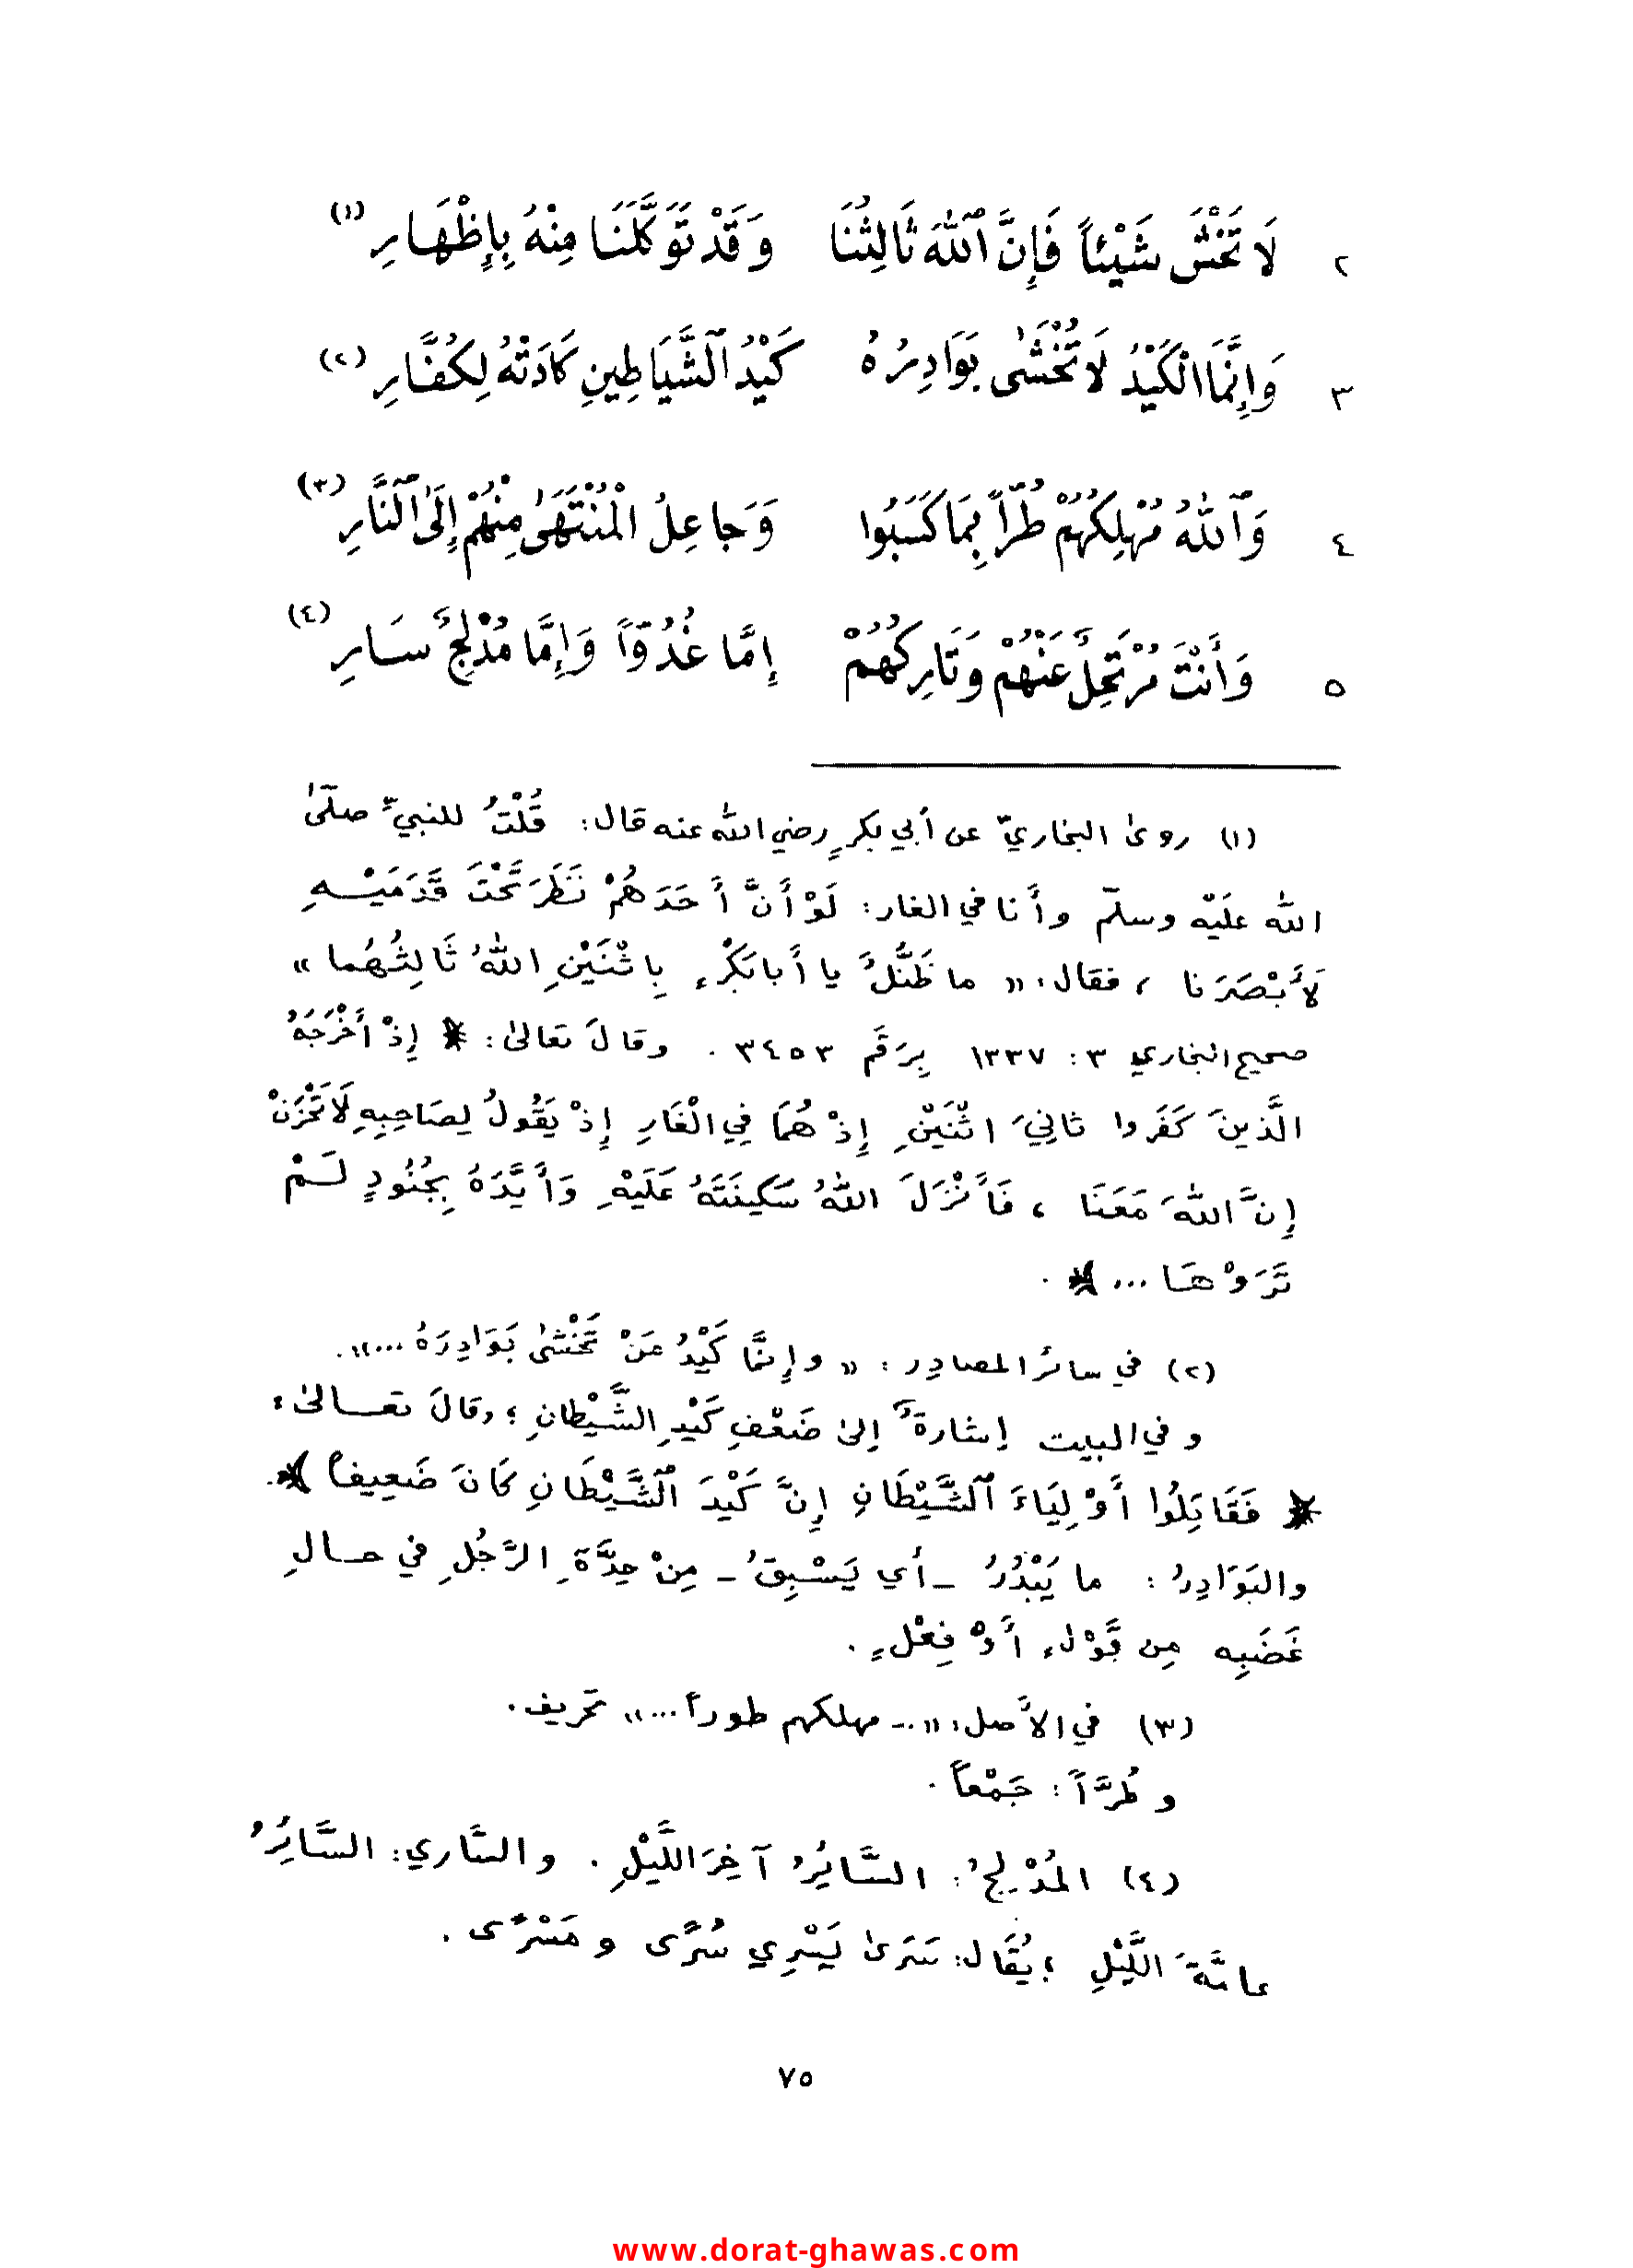 ٢ لَا تَخْشَ شَيْئاً فَإِنَّ ٱللّٰهَ ثَالِثُنَا وَقَدْ تَوَكَّلَنَا مِنْهُ بِإِظْهَارِ (١)
٣ وَإِنَّمَا الْكَيْدُ لَا تُخْشَىٰ بَوَادِرُهُ كَيْدُ ٱلشَّيَاطِينِ كَادَتْهُ لِكُفَّارِ (٢)
٤ وَٱللّٰهُ مُهْلِكُهُمْ طُرّاً بِمَا كَسَبُوا وَجَاعِلُ الْمُنْتَهَىٰ مِنْهُمْ إِلَىٰ ٱلنَّارِ (٣)
٥ وَأَنْتَ مُرْتَحِلٌ عَنْهُمْ وَتَارِكُهُمْ إِمَّا غُدُوّاً وَإِمَّا مُدْلِجٌ سَارِ (٤)
(١) روىٰ البخاريّ عن أبي بكرٍ رضي الله عنه قال: قُلْتُ للنبيّ صلّىٰ
الله عليْه وسلّم وأنا في الغار: لَوْ أَنَّ أَحَدَهُمْ نَظَرَ تَحْتَ قَدَمَيْهِ
لَأَبْصَرَنا ، فقال: « ما ظَنُّكَ يا أبا بَكْرٍ بِاثْنَيْنِ اللهُ ثَالِثُهُما »
صحيح البخاري ٣ : ١٣٣٧ بِرَقَم ٣٤٥٣ . وقالَ تعالىٰ: ﴿ إِذْ أَخْرَجَهُ
الَّذِينَ كَفَرُوا ثانِيَ اثْنَيْنِ إِذْ هُمَا فِي الْغَارِ إِذْ يَقُولُ لِصَاحِبِهِ لَا تَحْزَنْ
إِنَّ اللهَ مَعَنَا ، فَأَنْزَلَ اللهُ سَكِينَتَهُ عَلَيْهِ وَأَيَّدَهُ بِجُنُودٍ لَمْ
تَرَوْهَا ... ﴾ .
(٢) في سائر المصادر : « وإِنَّمَا كَيْدُ مَنْ تَخْشَىٰ بَوَادِرَهُ ... ».
وفي البيت إشارةٌ إلىٰ ضَعْفِ كَيْدِ الشَّيْطانِ ؛ وقالَ تعالىٰ :
﴿ فَقَاتِلُوا أَوْلِيَاءَ ٱلشَّيْطَانِ إِنَّ كَيْدَ ٱلشَّيْطَانِ كَانَ ضَعِيفاً ﴾.
والبَوَادِرُ : ما يَبْدُرُ ـ أي يَسْبِقُ ـ مِنْ حِدَّةِ الرَّجُلِ في حالِ
غَضَبِه مِن قَوْلٍ أَوْ فِعْلٍ .
(٣) في الأصل: «... مهلكهم طوراً ...» تحريف.
و طُرَّاً : جَمْعاً .
(٤) المُدْلِجُ : السَّائِرُ آخِرَ اللَّيْلِ . والسَّاري: السَّائِرُ
عامَّةَ اللَّيْلِ ؛ يُقَال: سَرَىٰ يَسْرِي سُرًى و مَسْرًى .
٧٥
www.dorat-ghawas.com